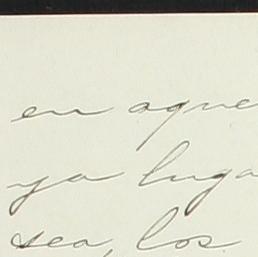 en aque
ya luga
sea, los